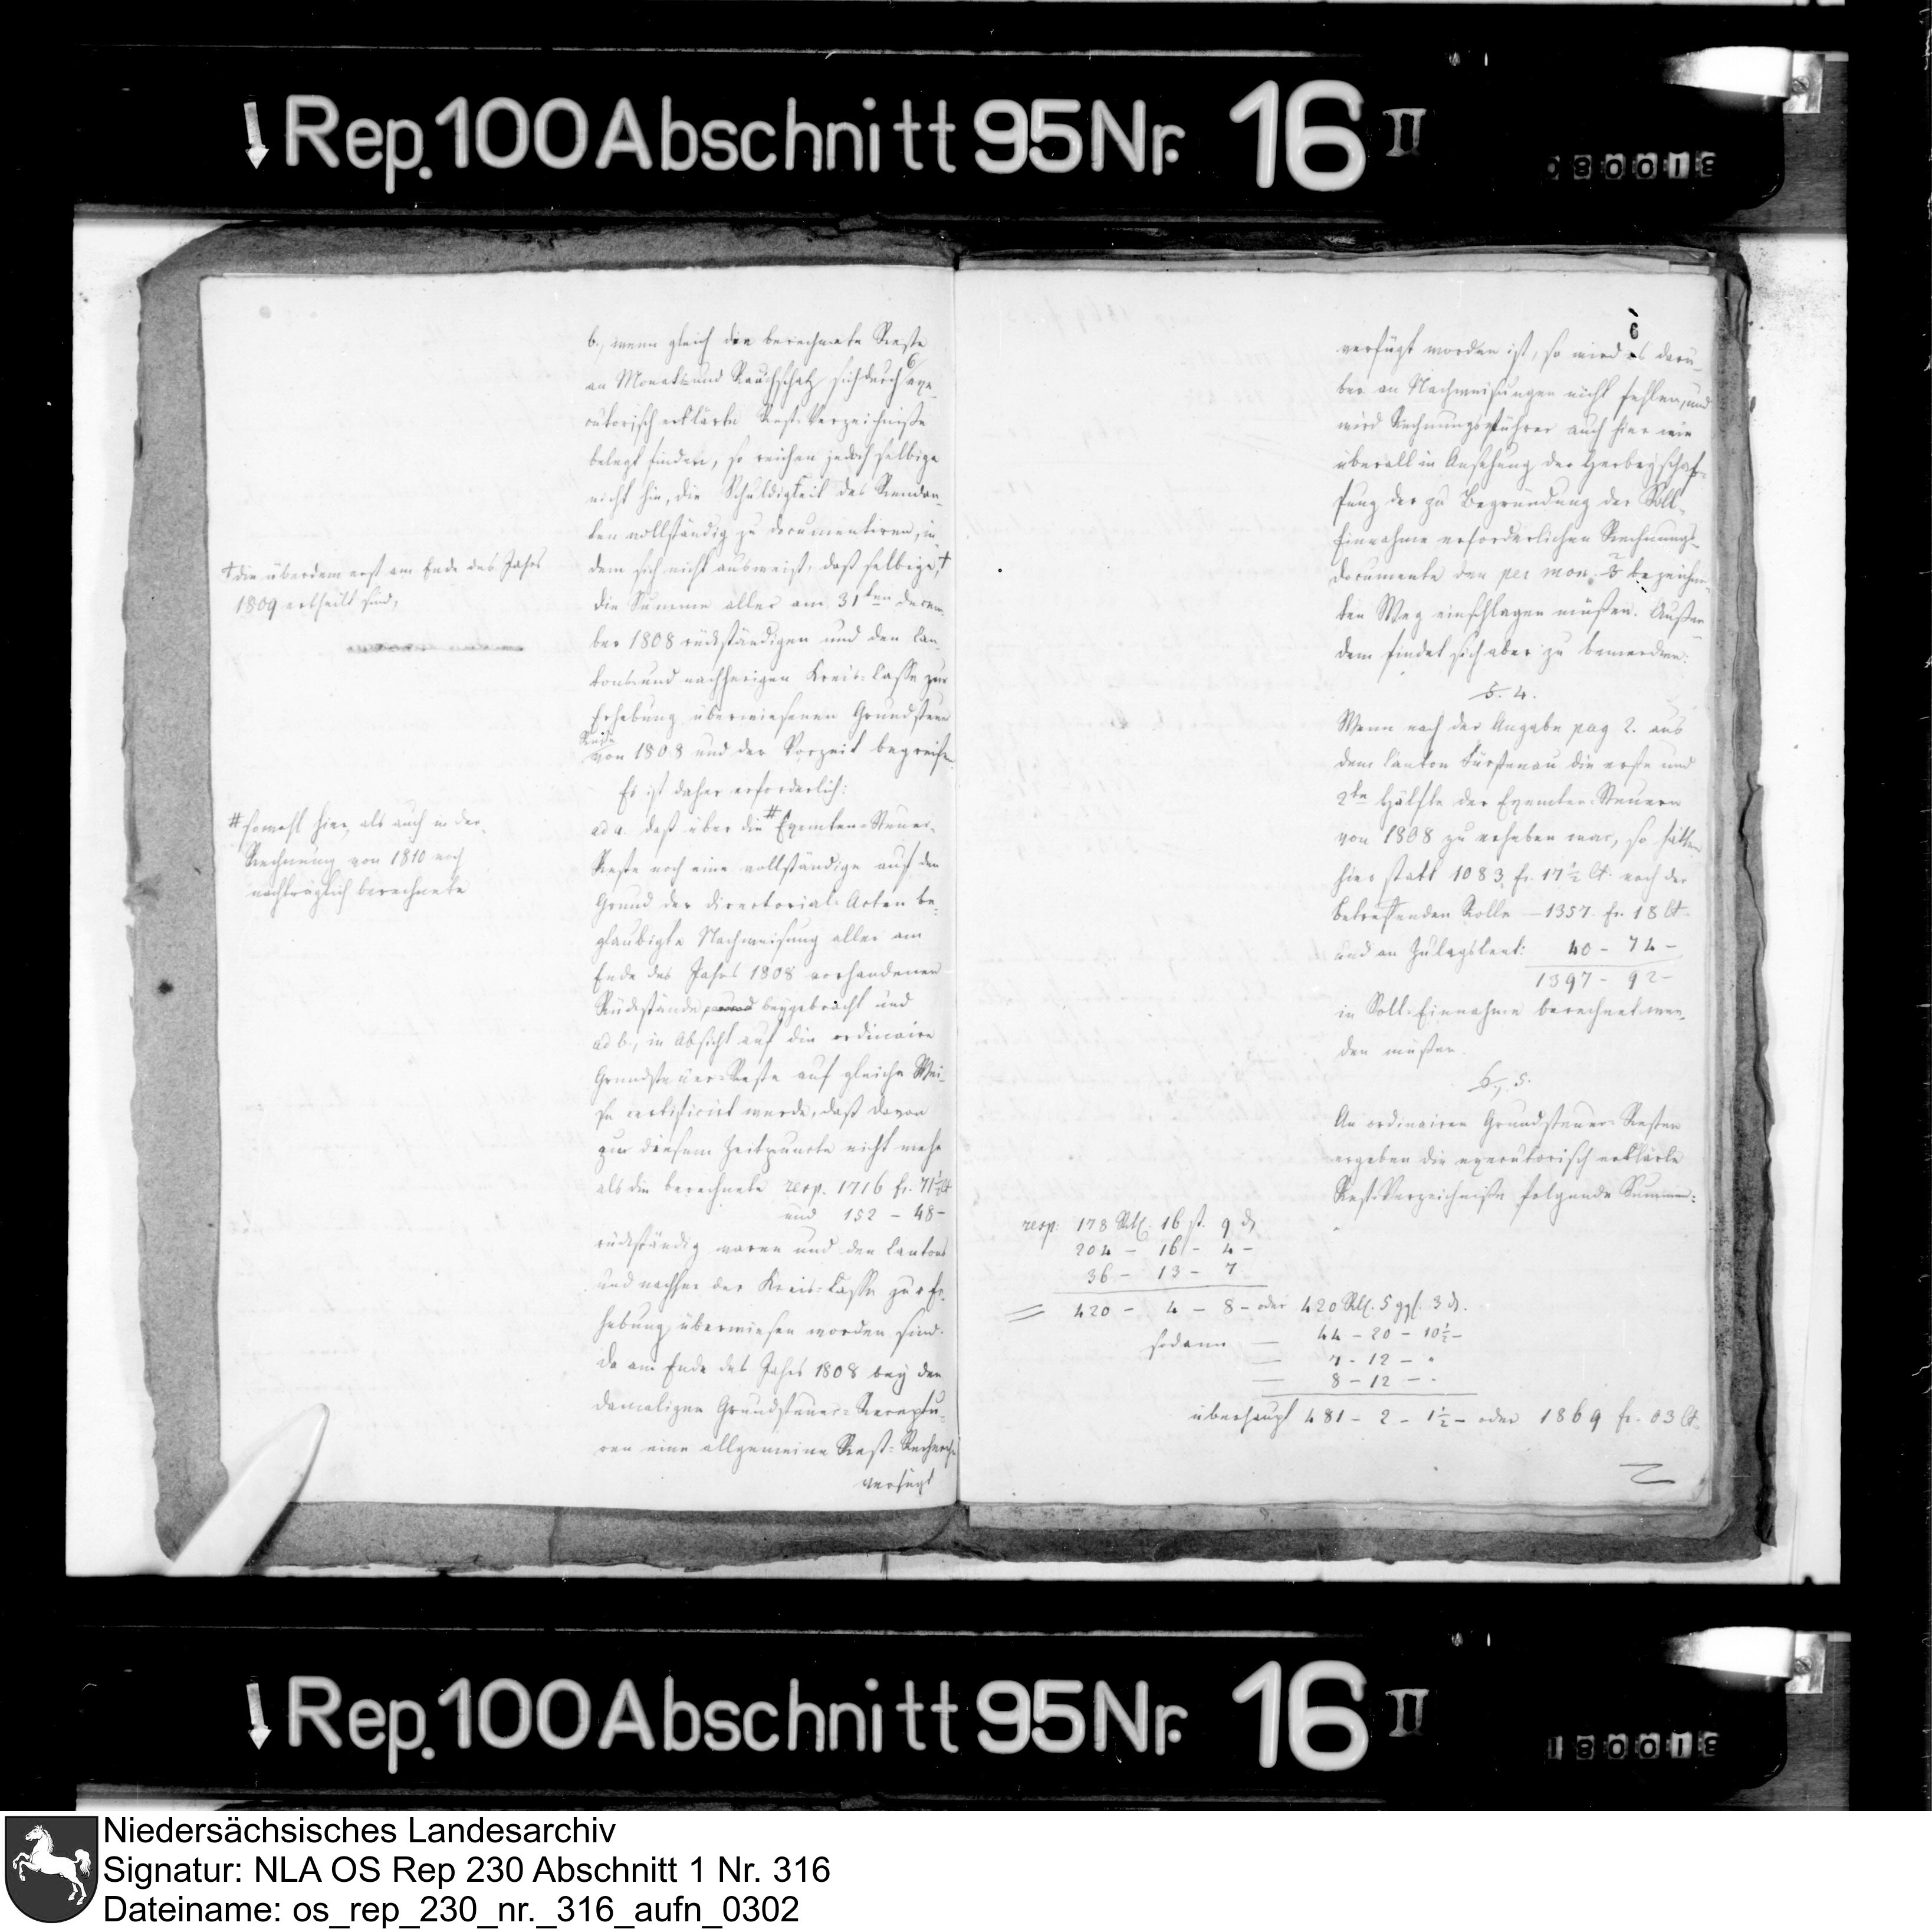 Rep. 100 Abschnitt 95 Nr. 16 II
b., wenn gleich die berechnete Reste
an Monats- und Rauchschatz sich durch 6 exe-
cutorisch erklärte Rest-Verzeichniße
belegt finden, so reichen jedoch selbige
nicht hin, die Schuldigkeit des Rendan-
ten vollständig zu documentiren, in-
dem sich nicht ausweist, daß selbige, †
die Summe aller am 31ten Decem-
ber 1808 rückständigen und den Can-
tons und nachherigen Kreis-Casse zur
Erhebung überwiesenen Grundsteuer
Reste
von 1808 und der Vorzeit begreifen.
Es ist daher erforderlich:
ad a. daß über die # Exemten-Steuer-
Reste noch eine vollständige auf den
Grund der Directorial-Acten be-
glaubigte Nachweisung aller am
Ende des Jahrs 1808 vorhandenen
Rückstände beygebracht und
ad b., in Absicht auf die ordinaire
Grundsteuer-Reste auf gleiche Wei-
se certificirt werde, daß davon
zu diesem Zeitpuncte nicht mehr
als die berechnete resp. 1716 fr. 71½ Ct
und 152 - 48 -
rückständig waren und den Cantons
und nachher der Kreis-Casse zur Er-
hebung überwiesen worden sind.
Da am Ende des Jahrs 1808 bey den
damaligen Grundsteuer-Receptu-
ren eine allgemeine Rest-Recherche
verfügt
† die überdem erst am Ende des Jahrs
1809 ertheilt sind,
# sowohl hier, als auch in der
Rechnung von 1810 noch
nachträglich berechnete
6
verfügt worden ist, so wird es darü-
ber an Nachweisungen nicht fehlen, und
wird Rechnungsführer auch hier wie
überall in Ansehung der Herbeyschaf-
fung der zu Begründung der Soll-
Einnahme erforderlichen Rechnungs-
documente den per mon. 2 bezeichne-
ten Weg einschlagen müßen. Außer-
dem findet sich aber zu bemerken:
§. 4.
Wenn nach der Angabe pag 2. aus
dem Canton Fürstenau die erste und
2te Hälfte der Exemten-Steuern
von 1808 zu erheben war, so hätte
hier statt 1083 fr. 17½ Ct. nach der
betreffenden Rolle - 1357. fr. 18 Ct.
und an Zulagscent: 40 - 74 -
1397 - 92 -
in Soll-Einnahme berechnet wer-
den müßen.
§. 5.
An ordinairen Grundsteuer-Resten
ergeben die executorisch erklärte
Rest-Verzeichniße folgende Summen:
resp. 178 Rtl. 16 st. 9 d
204 - 16 - 4 -
36 - 13 - 7
= 420 - 4 - 8 - oder 420 Rtl. 5 ggl. 3 d.
sodann — 44 - 20 - 10½ -
— 7 - 12 - "
— 8 - 12 - "
überhaupt 481 - 2 - 1½ - oder 1869 fr. 03 Ct.
Rep. 100 Abschnitt 95 Nr. 16 II
Niedersächsisches Landesarchiv
Signatur: NLA OS Rep 230 Abschnitt 1 Nr. 316
Dateiname: os_rep_230_nr._316_aufn_0302